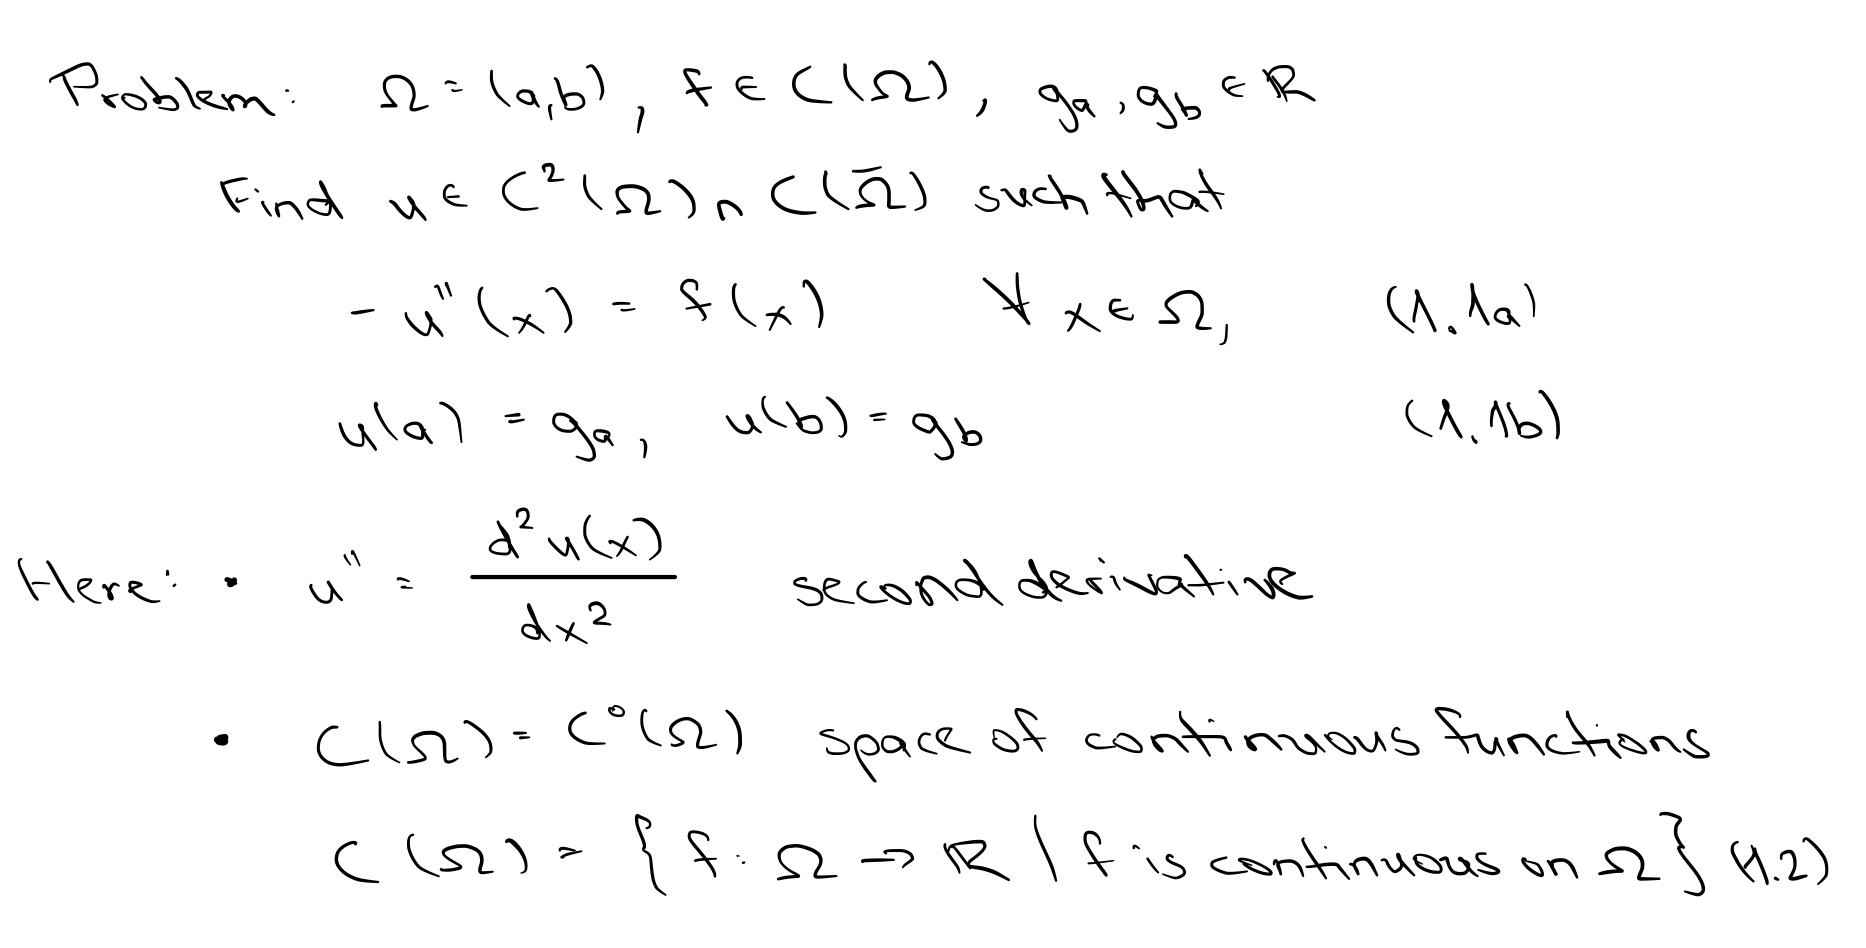 Problem: Ω = (a,b), f ∈ C(Ω), g_a, g_b ∈ ℝ
Find u ∈ C²(Ω) ∩ C(Ω̄) such that
- u''(x) = f(x) ∀ x ∈ Ω, (1.1a)
u(a) = g_a, u(b) = g_b (1.1b)
Here: • u'' = d²u(x) / dx² second derivative
• C(Ω) = C⁰(Ω) space of continuous functions
C(Ω) = { f: Ω → ℝ | f is continuous on Ω } (1.2)